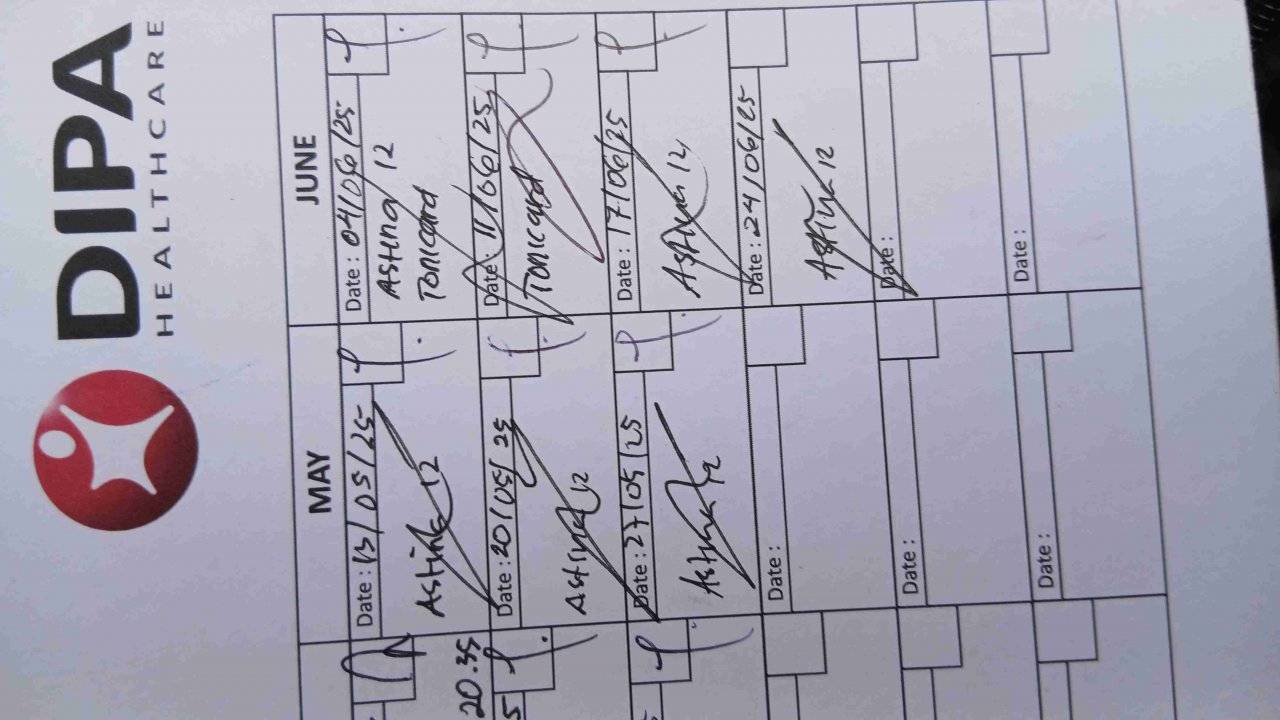 DIPA
HEALTHCARE
MAY
Date : 13/05/25
12
Date : 20/05/25
12
Date : 27/05/25
12
Date :
Date :
Date :
JUNE
Date : 04/06/25
12
Tonicard
Date : 11/06/25
Tonicard
Date : 17/06/25
12
Date : 24/06/25
12
Date :
Date :
20.35
5